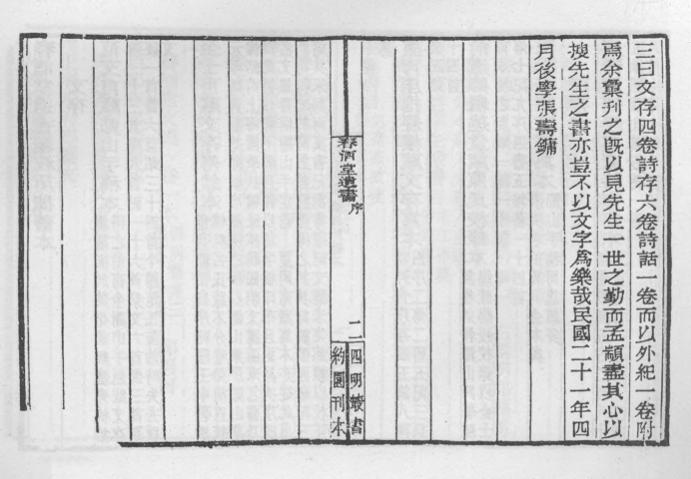 三曰文存四卷詩存六卷詩話一卷而以外紀一卷附
焉余彙刊之旣以見先生一世之勤而孟顓盡其心以
搜先生之書亦豈不以文字爲樂哉民國二十一年四
月後學張壽鏞
春酒堂遺書 序
二
四明叢書
約園刊本